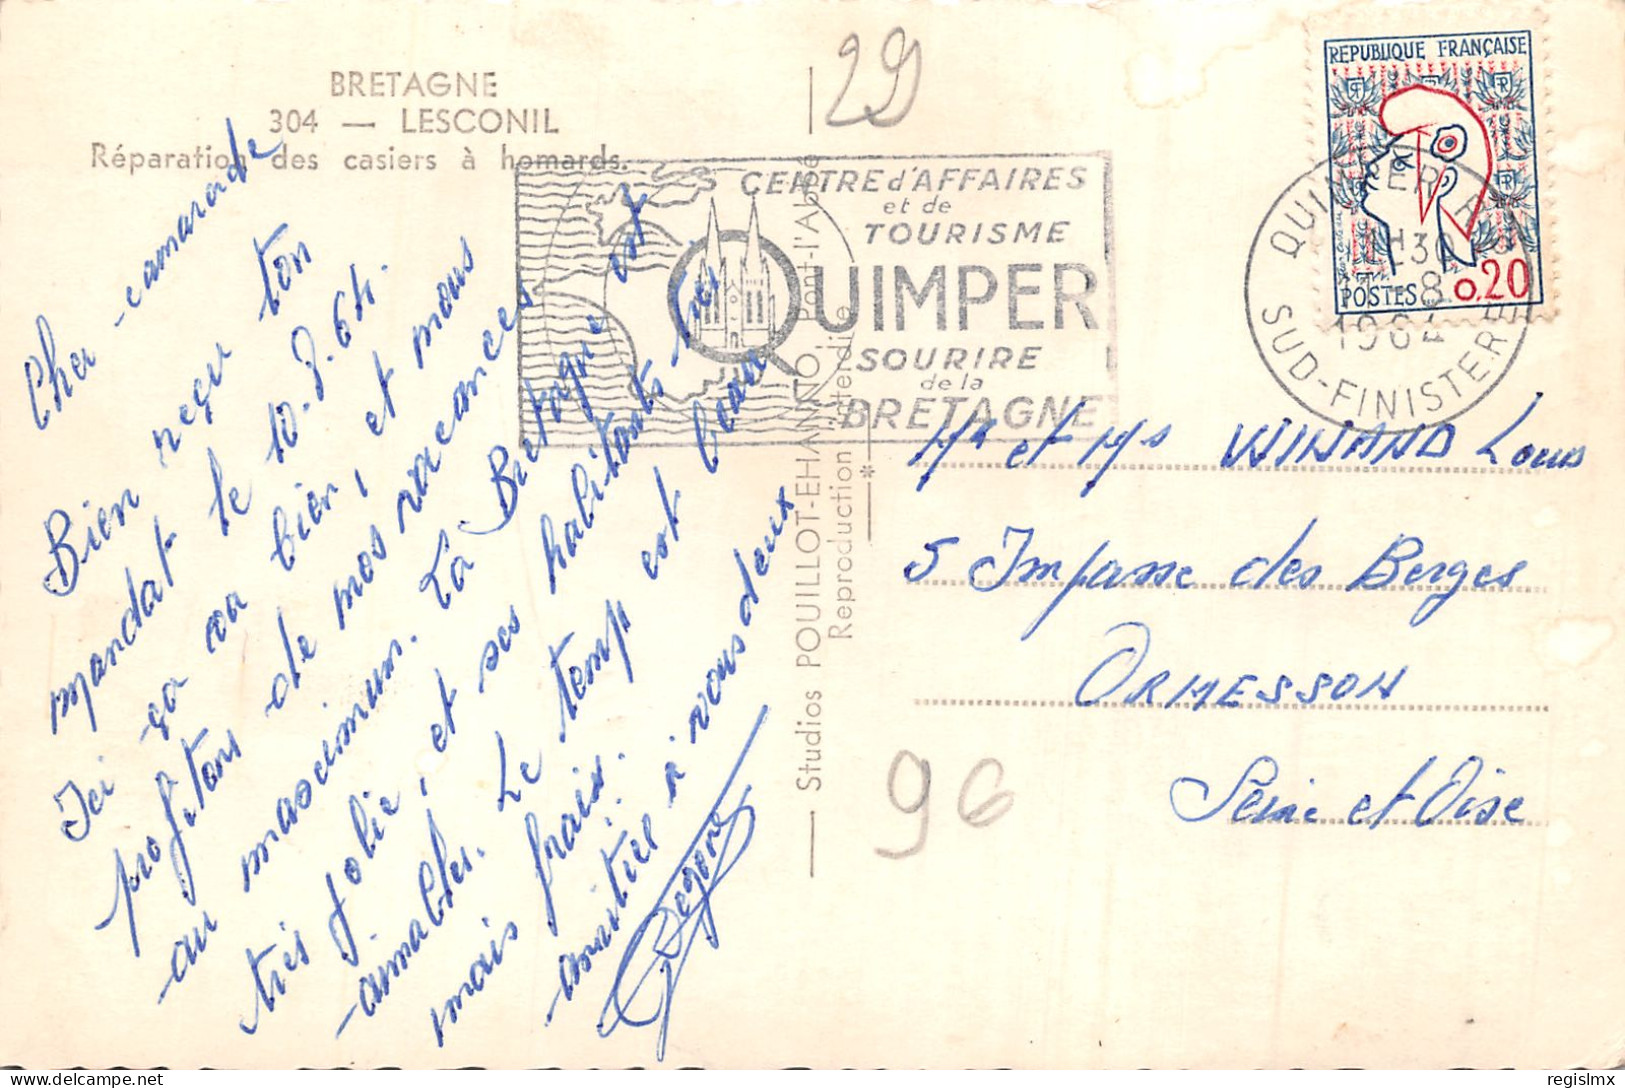 BRETAGNE
304 — LESCONIL
Réparation des casiers à homards.
Cher camarade
Bien reçu ton
mandat le 10.8.64.
Ici ça va bien, et nous
profitons de nos vacances
au mascimum. La Bretagne est
très jolie, et ses habitants très
aimables. Le temps est beau
mais frais.
amitiés à vous deux
29
CENTRE d'AFFAIRES
et de
TOURISME
QUIMPER
SOURIRE
de la
BRETAGNE
Studios POUILLOT-EHANNO Pont-l'Abbé
Reproduction interdite
*
REPUBLIQUE FRANÇAISE
RF
POSTES 0,20
QUIMPER R.P.
12H30
8
1964
SUD-FINISTERE
Mr et Ms WINAND Louis
5 Impasse des Berges
ORMESSON
Seine et Oise
96
regislmx